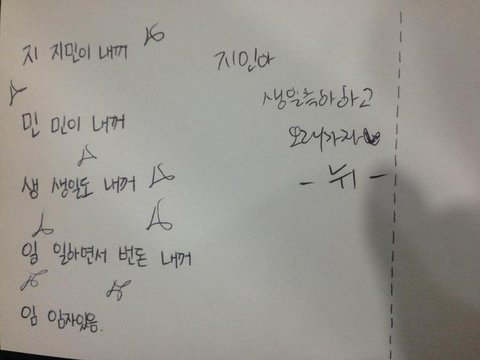 지 지민이 내꺼
민 민이 내꺼
생 생일도 내꺼
일 일하면서 번돈 내꺼
임 임자있음.
지민아
생일축하하고
오래가자
- 뉘 -